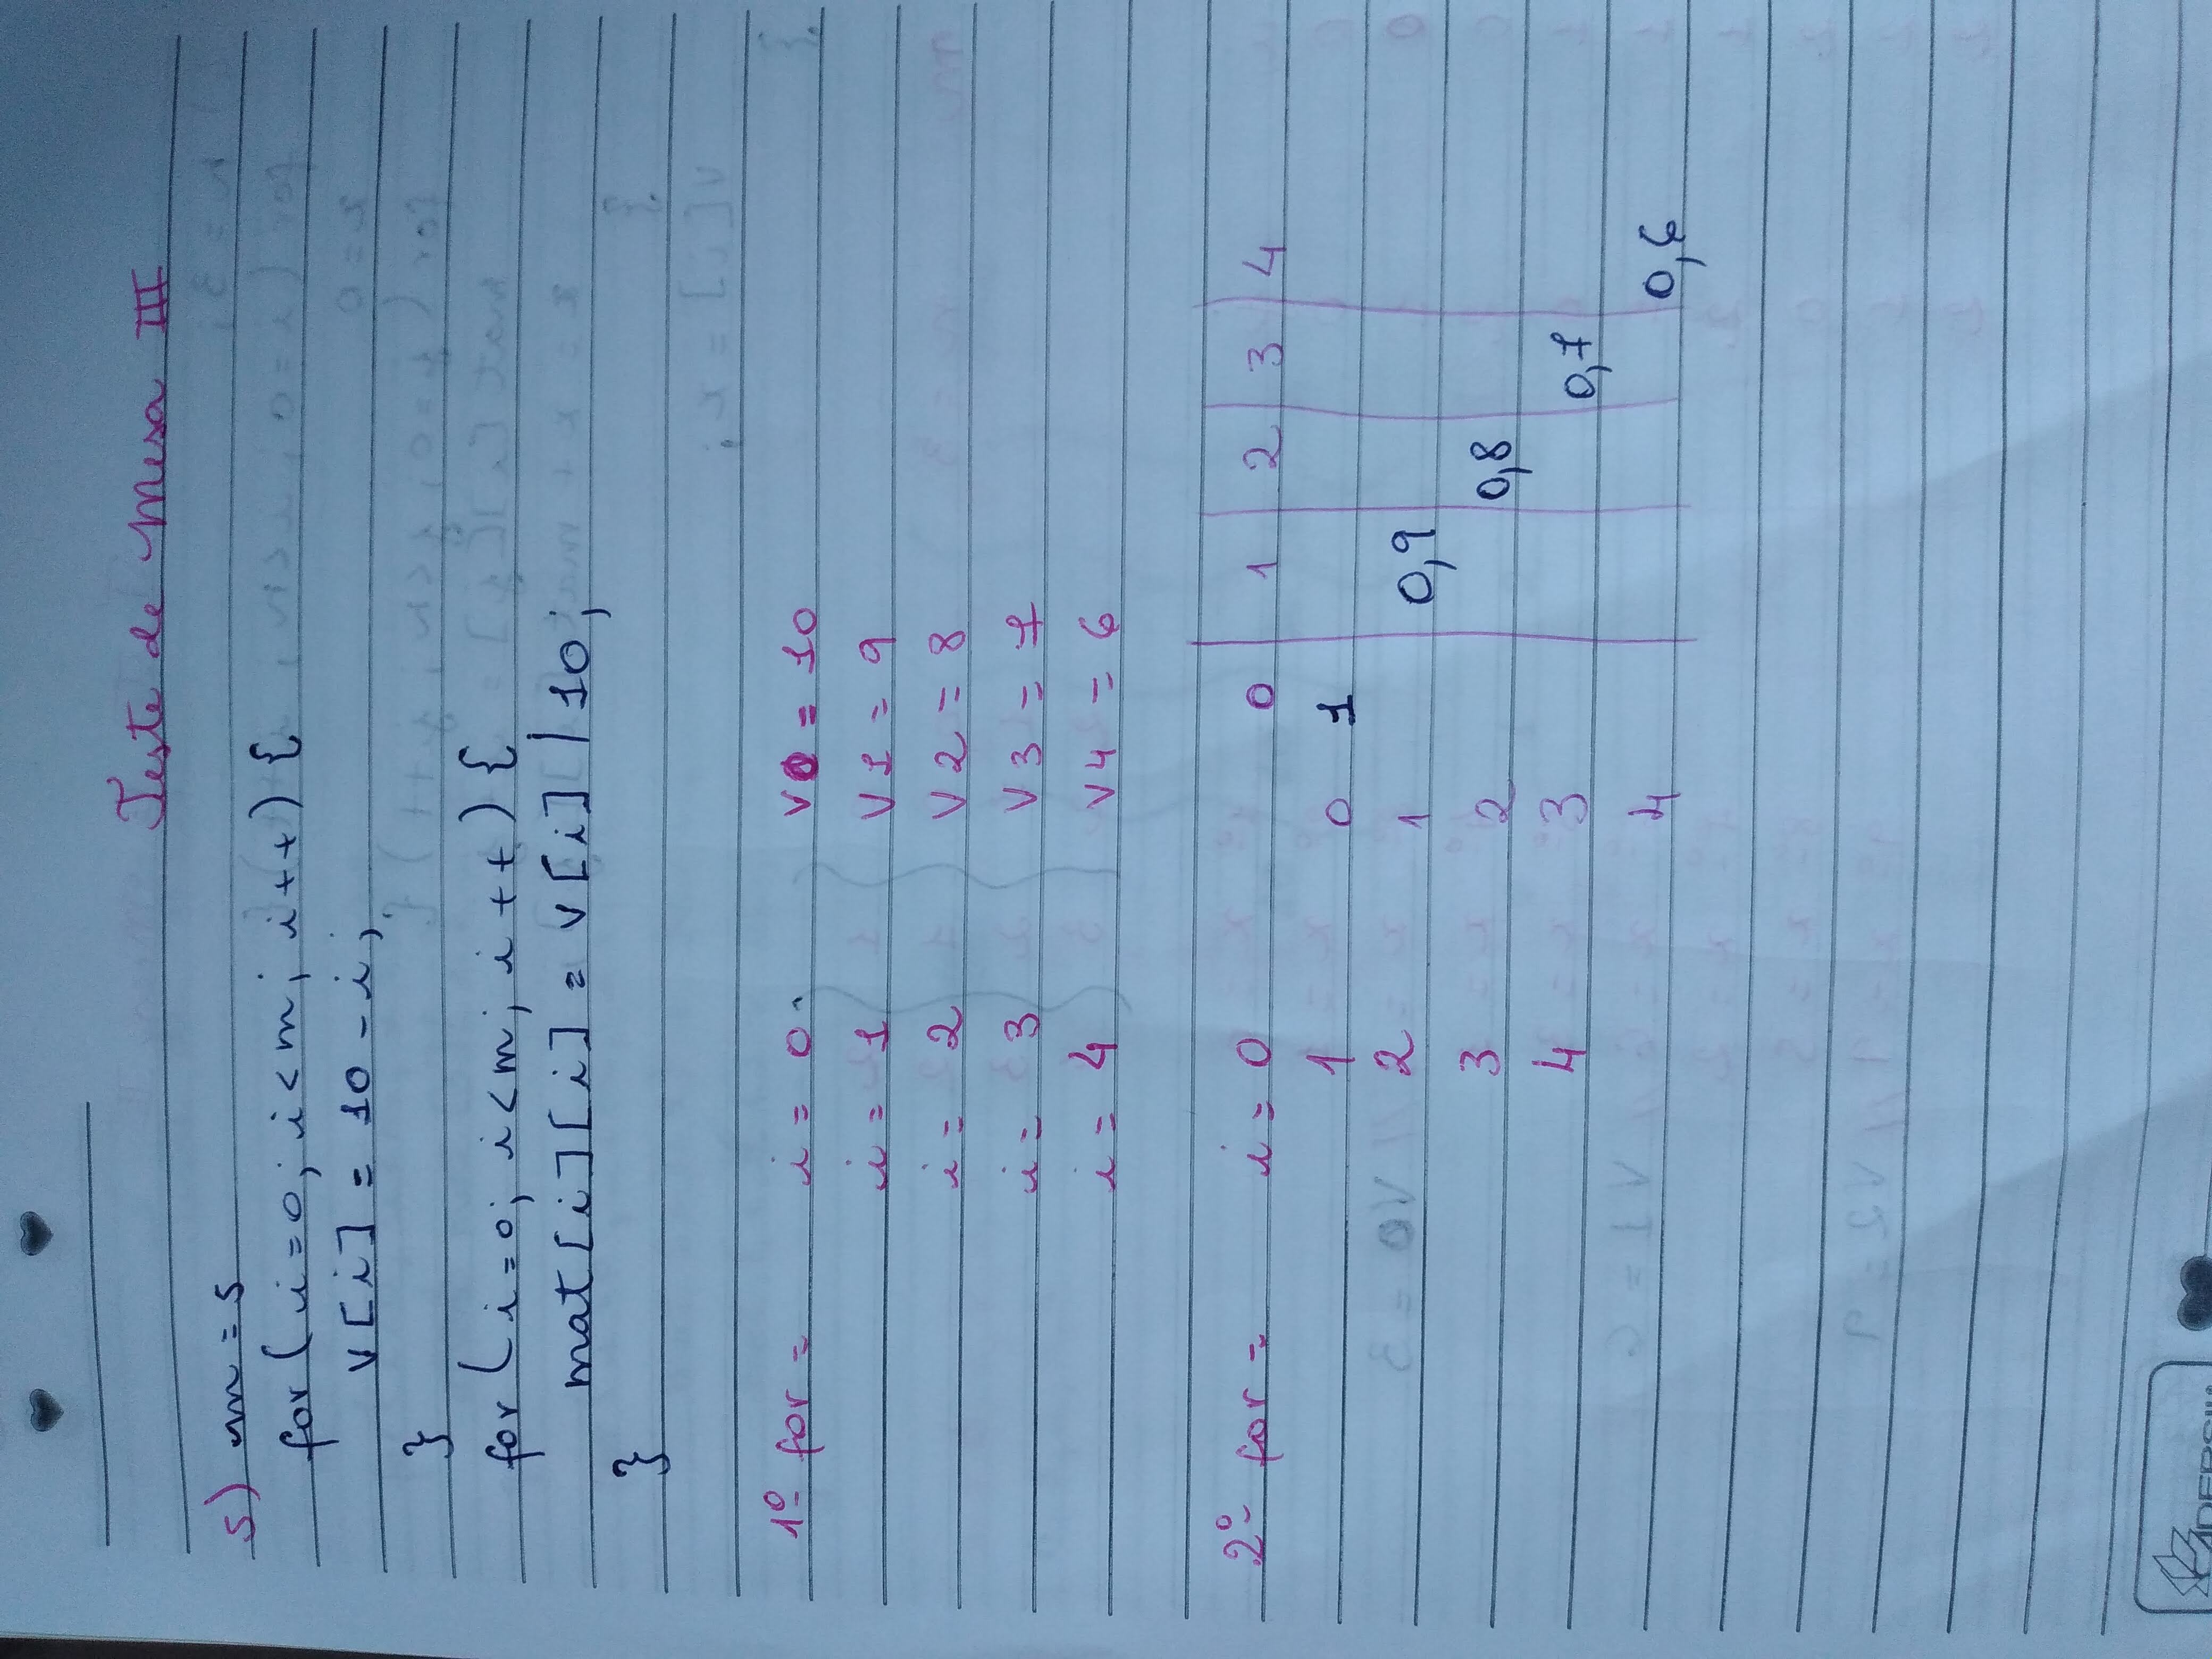 Teste de Mesa III
5) m = 5
for (i=0; i<m; i++) {
v[i] = 10 - i;
}
for (i=0; i<m; i++) {
mat[i][i] = v[i] | 10;
}
1º for = i = 0 V0 = 10
i = 1 V1 = 9
i = 2 V2 = 8
i = 3 V3 = 7
i = 4 V4 = 6
2º for = i = 0 0 1 2 3 4
1 0 1
2 1 0,9
3 2 0,8
4 3 0,7
4 0,6